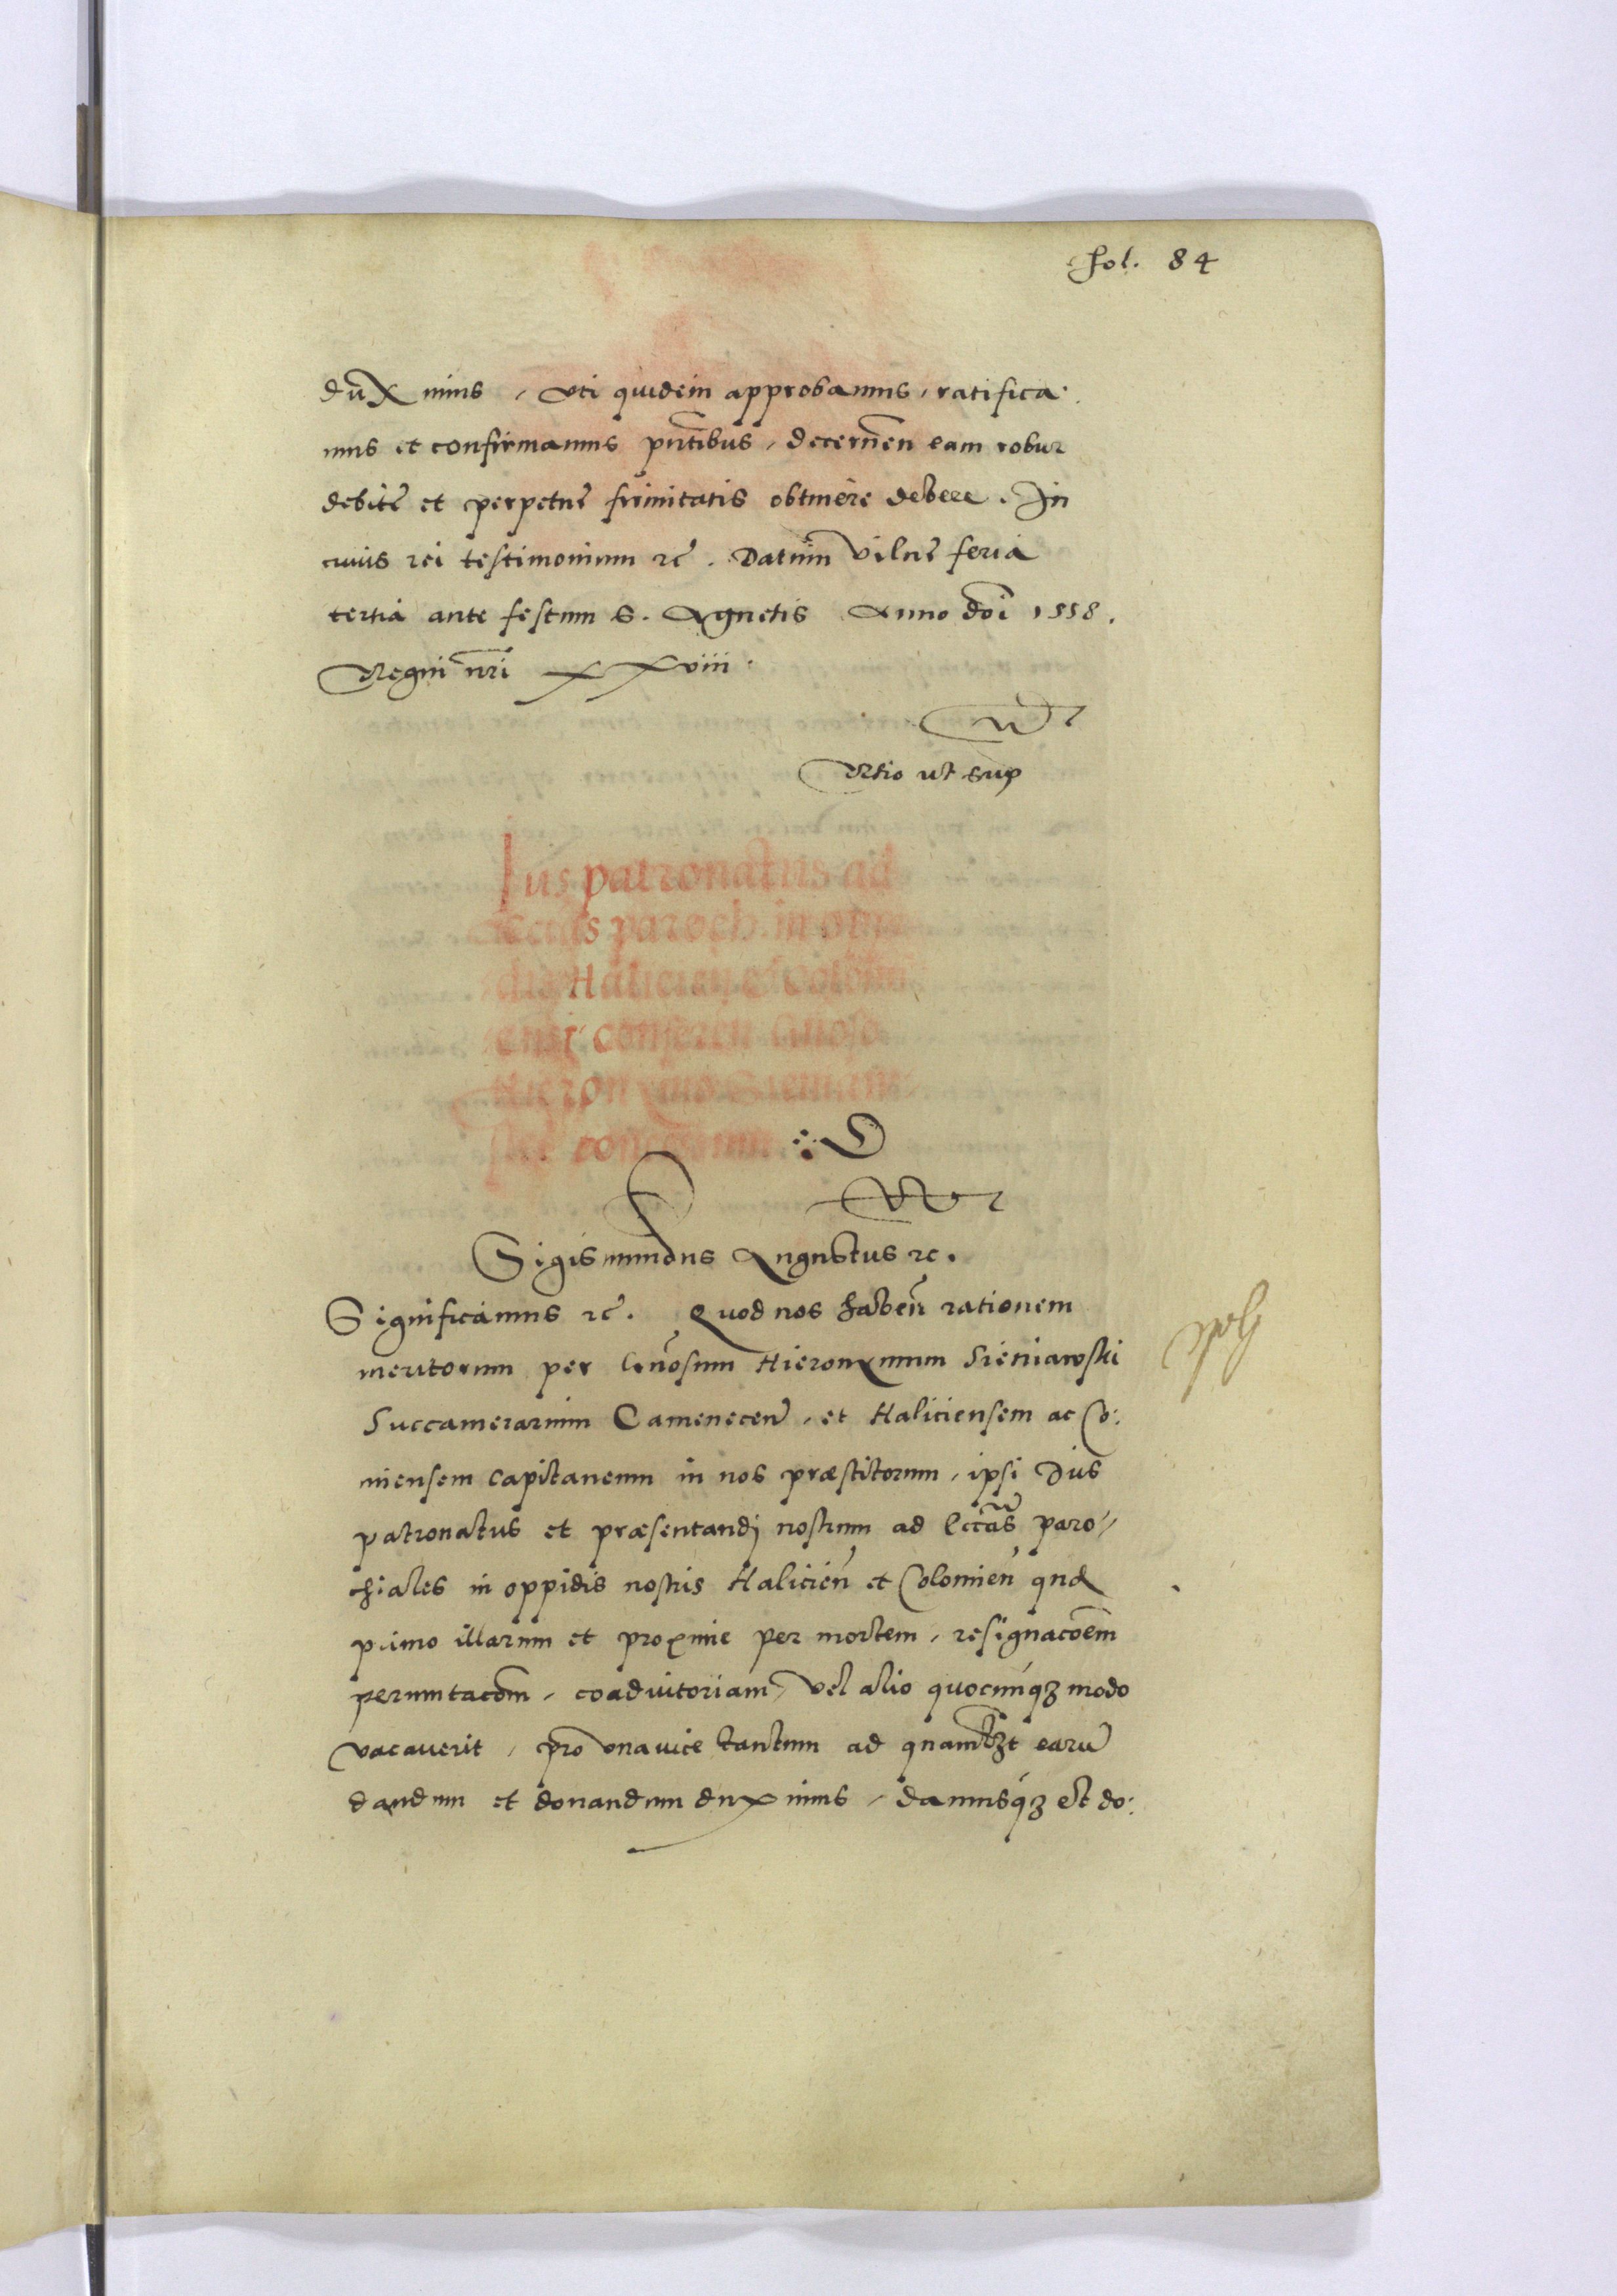 fol. 84
duximus, uti quidem approbamus, ratifica:
mus et confirmamus pñtibus, decerneñ eam robur
debitę et perpetuę firmitatis obtinere debere. In
cuius rei testimonium ꝛc̃. Datum Vilnę feria
tertia ante festum S. Agnetis Anno dñi 1558.
Regni nr̃i xxviii.
Rtio ut sup
Ius patronatus ad
ecclãs paroch. in
Halicień et Colomi
ensi conferen Gnoso
Hieronymo Sieniaw
ski concessum
Sigismundus Augustus ꝛc.
Significamus ꝛc̃. Quod nos habeñ rationem
meritorum per Gñosum Hieronymum Sieniawski
Succamerarium Camenecen̄, et Haliciensem ac Co:
miensem Capitaneum in nos præstitorum, ipsi Ius
patronatus et præsentandj nostrum ad Eccl̃as paro:
chiales in oppidis nostris Halicień et Colomień quæ
primo illarum et proxime per mortem, resignacõem
permutacõm, coadiutoriam, vel alio quocunqꝫ modo
vacaverit, pro una vice tantum ad quamlꝫt earũ
dandum et donandum duximus, damusqꝫ et do: